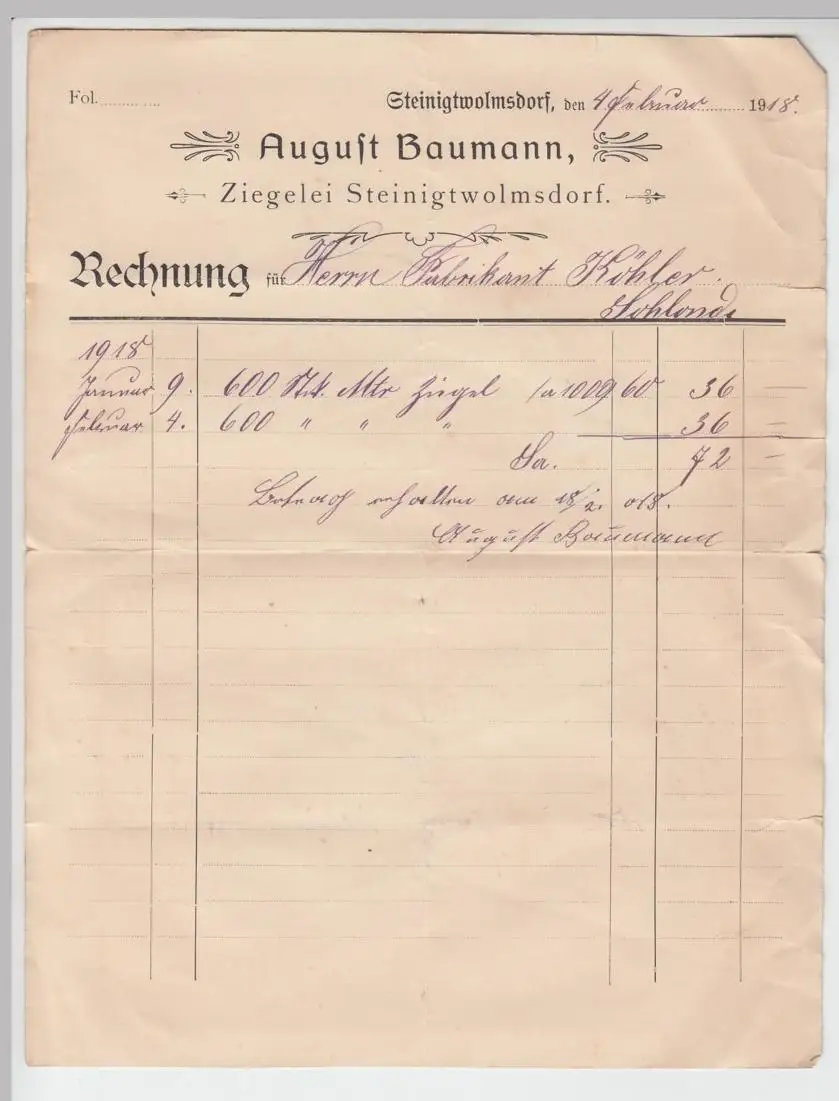 Fol.
Steinigtwolmsdorf, den 4 Februar 1918.
August Baumann,
Ziegelei Steinigtwolmsdorf.
Rechnung für Herrn Fabrikant Köhler.
Sohland
1918
Januar 9. 600 Stck. Ziegel 60 36 —
Februar 4. 600 " " " 36 —
Sa. 72 —
Betrag erhalten am 18/2. 018.
August Baumann